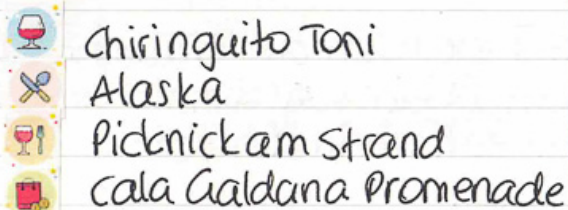 Chiringuito Toni
Alaska
Picknick am Strand
Cala Galdana Promenade